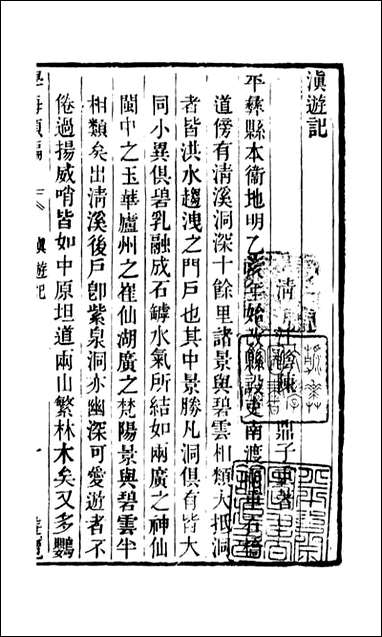 滇遊記
清 江陰陳 鼎子重著
平彝縣本衛地明乙亥年始改縣設吏南渡石橋
道傍有清溪洞深十餘里諸景與碧雲相類大抵洞
者皆洪水趨洩之門戶也其中景勝凡洞俱有皆大
同小異俱碧乳融成石罅水氣所結如兩廣之神仙
閩中之玉華廬州之崔仙湖廣之梵陽景與碧雲半
相類矣出清溪後戶卽紫泉洞亦幽深可愛遊者不
倦過揚威哨皆如中原坦道兩山繁林木矣又多鸚
學海類編
滇遊記
一
遊覽